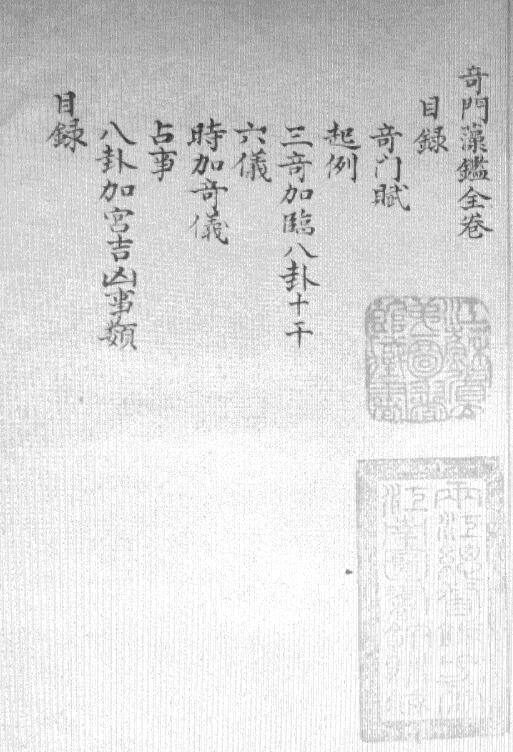 奇門藻鑑全卷
目録
奇门賦
起例
三奇加臨八卦十干
六儀
時加奇儀
占事
八卦加宮吉凶事類
目録